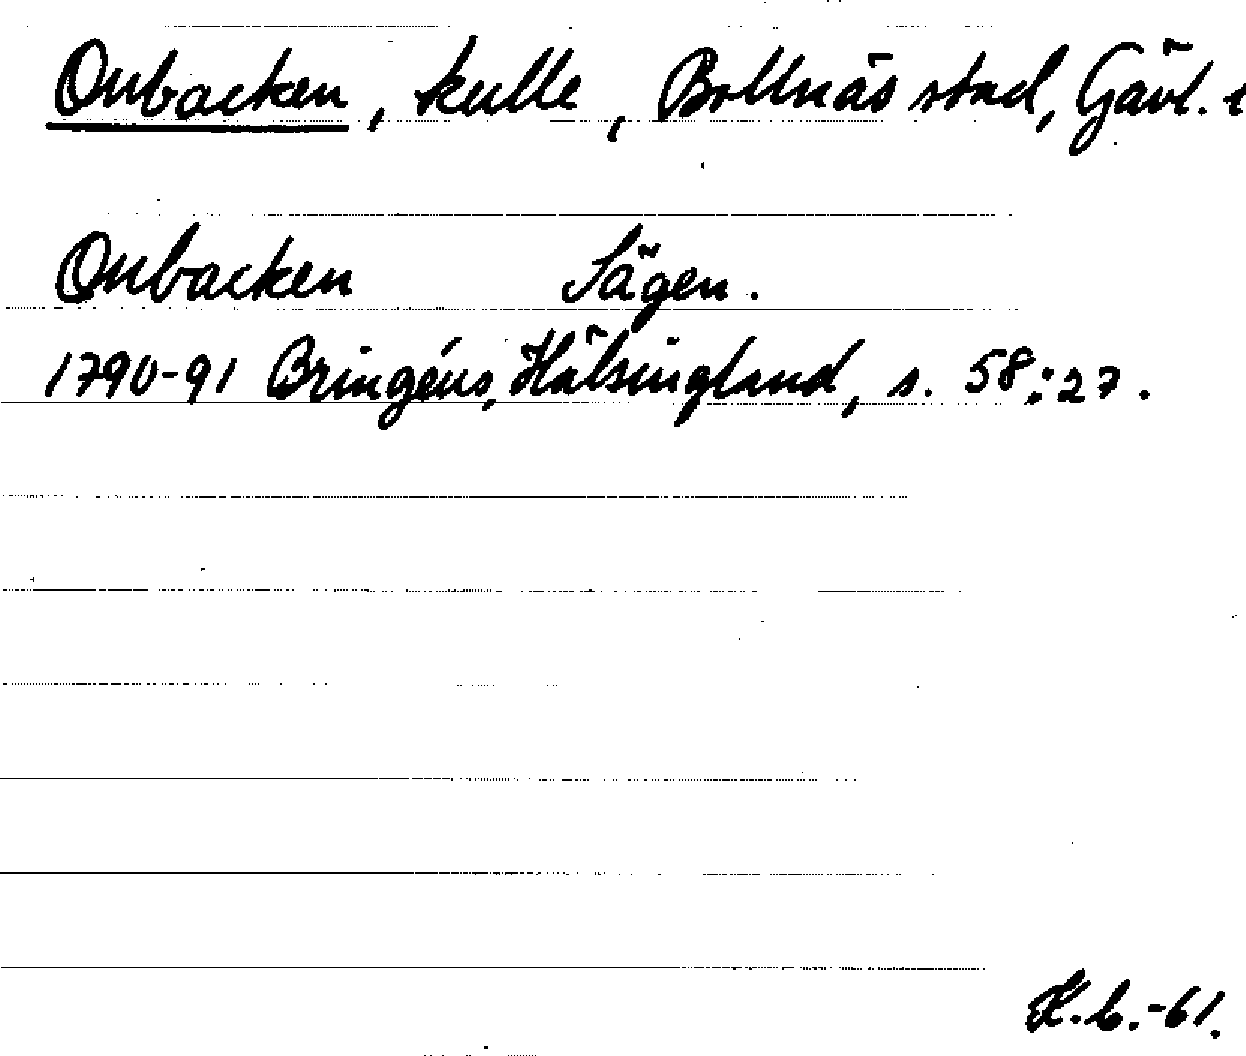 Onbacken, kulle, Bollnäs stad, Gävl.
Onbacken Sägen.
1790-91 Bringéus, Hälsingland, s. 58:27.
K.L.-61.